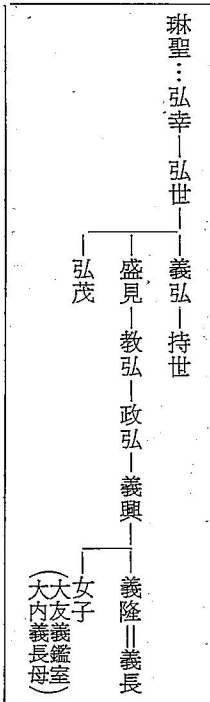 琳聖…弘幸―弘世―義弘―持世
盛見―教弘―政弘―義興―義隆＝義長
弘茂
女子
（大友義鑑室
大内義長母）